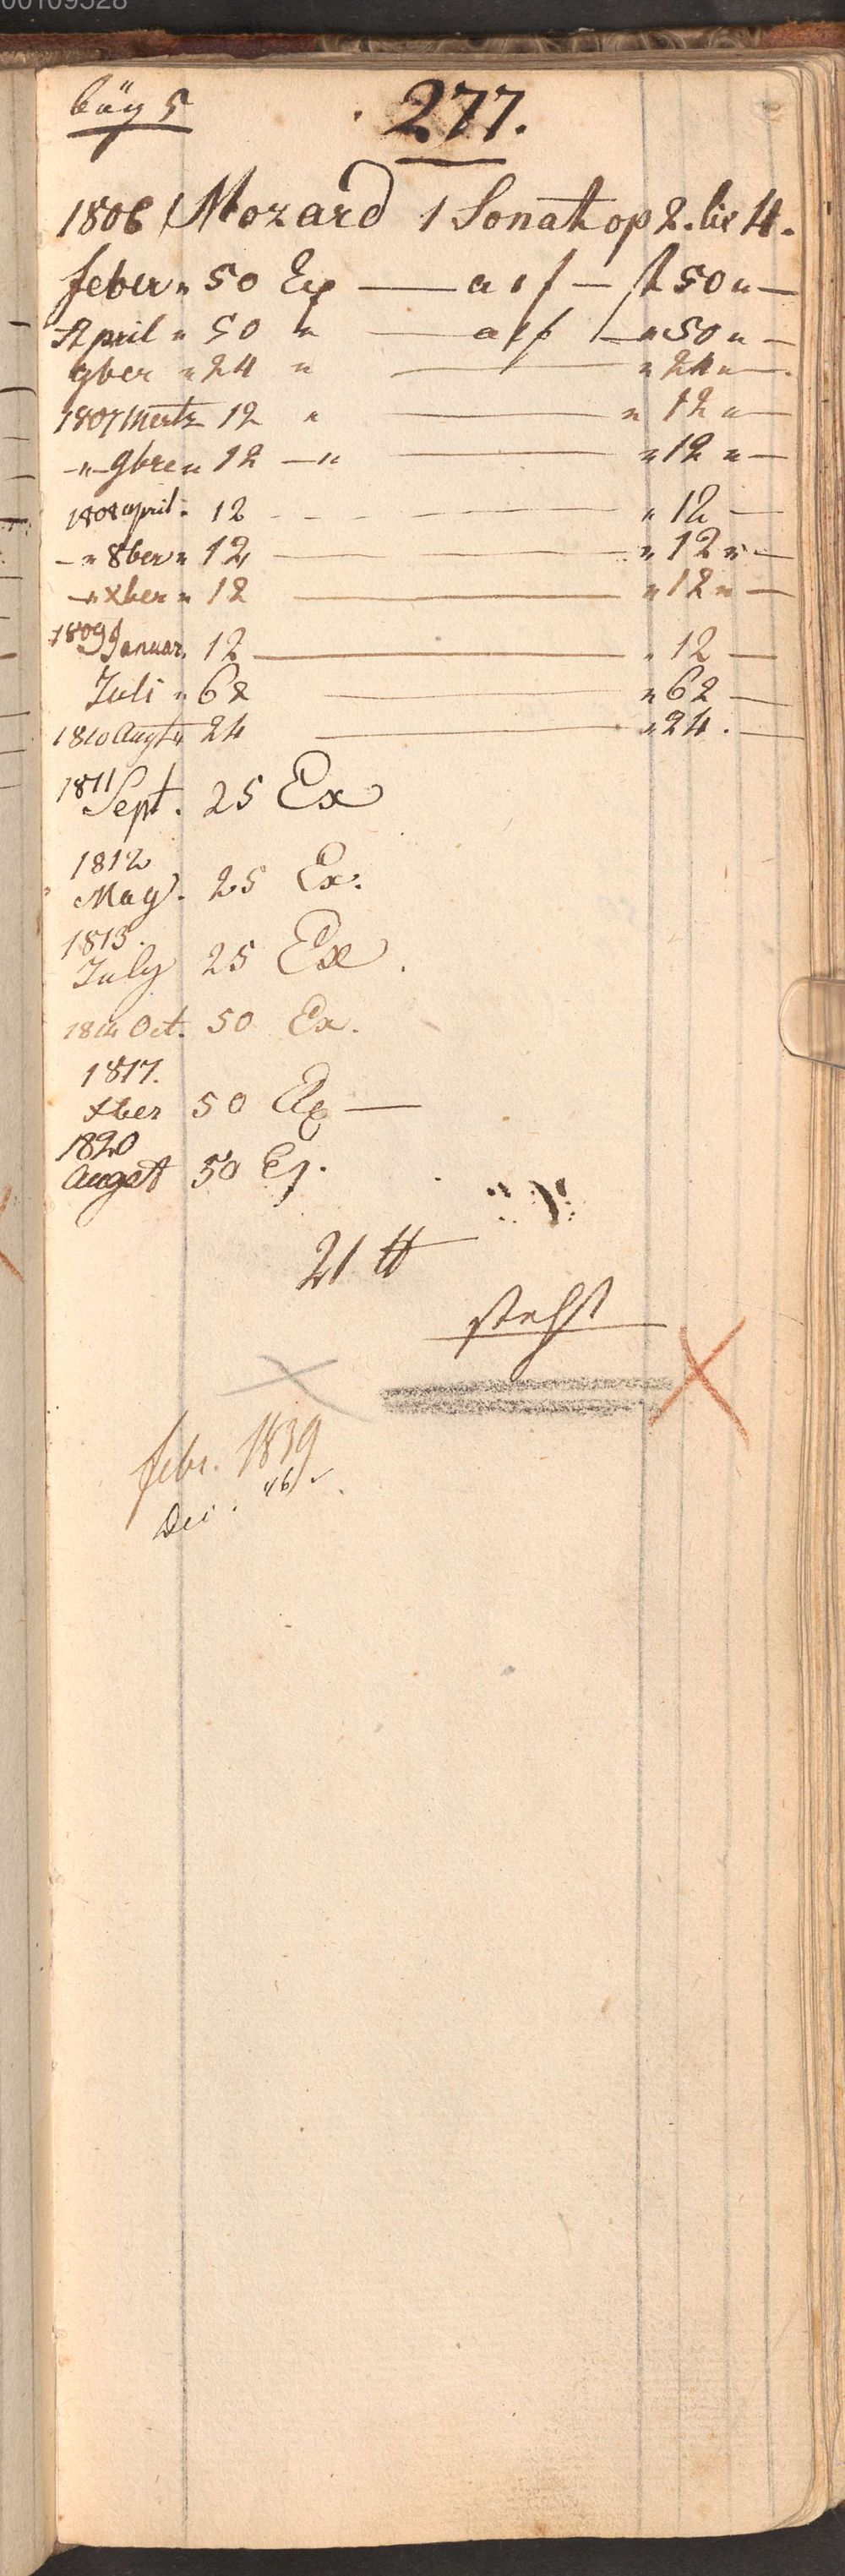 00109528
bög 5
277.
1806 Mozard 1 Sonat op 2. lir 4.
feber " 50 Ex — a 1 f — f 50 " —
April " 50 " — a 1 f — " 50 " —
9ber " 24 " — " 24 " —
1807 Mertz 12 " — " 12 " —
— " 9bre " 12 — " — " 12 " —
1808 april " 12 — " 12 —
— " 8ber " 12 — " 12 " —
— " xber " 12 — " 12 " —
1809 Januar. 12 — " 12 —
Juli " 62 — " 62 —
1810 Augt " 24 — " 24. —
1811
Sept. 25 Ex
1812
May. 25 Ex.
1813.
July 25 Ex.
1814 Oct. 50 Ex.
1817.
xber 50 Ex —
1820
Augst 50 Ex.
21 ℔
steht
febr. 1839
Dec. "46